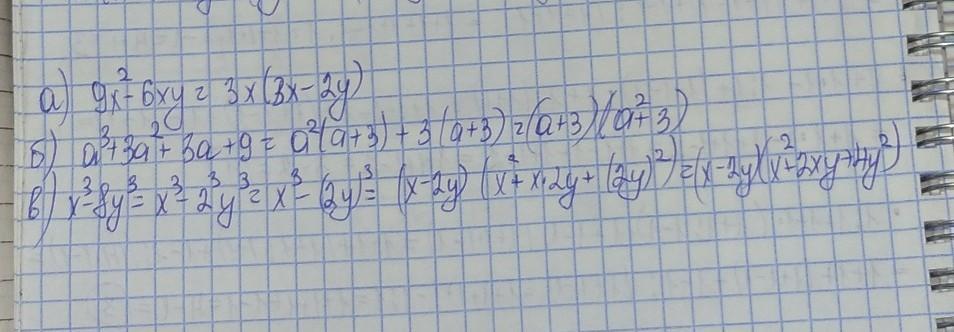 а) 9x²-6xy = 3x(3x-2y)
б) a³+3a²+3a+9 = a²(a+3)+3(a+3)=(a+3)(a²+3)
в) x³-8y³=x³-2³y³=x³-(2y)³=(x-2y)(x²+x·2y+(2y)²)=(x-2y)(x²+2xy+4y²)